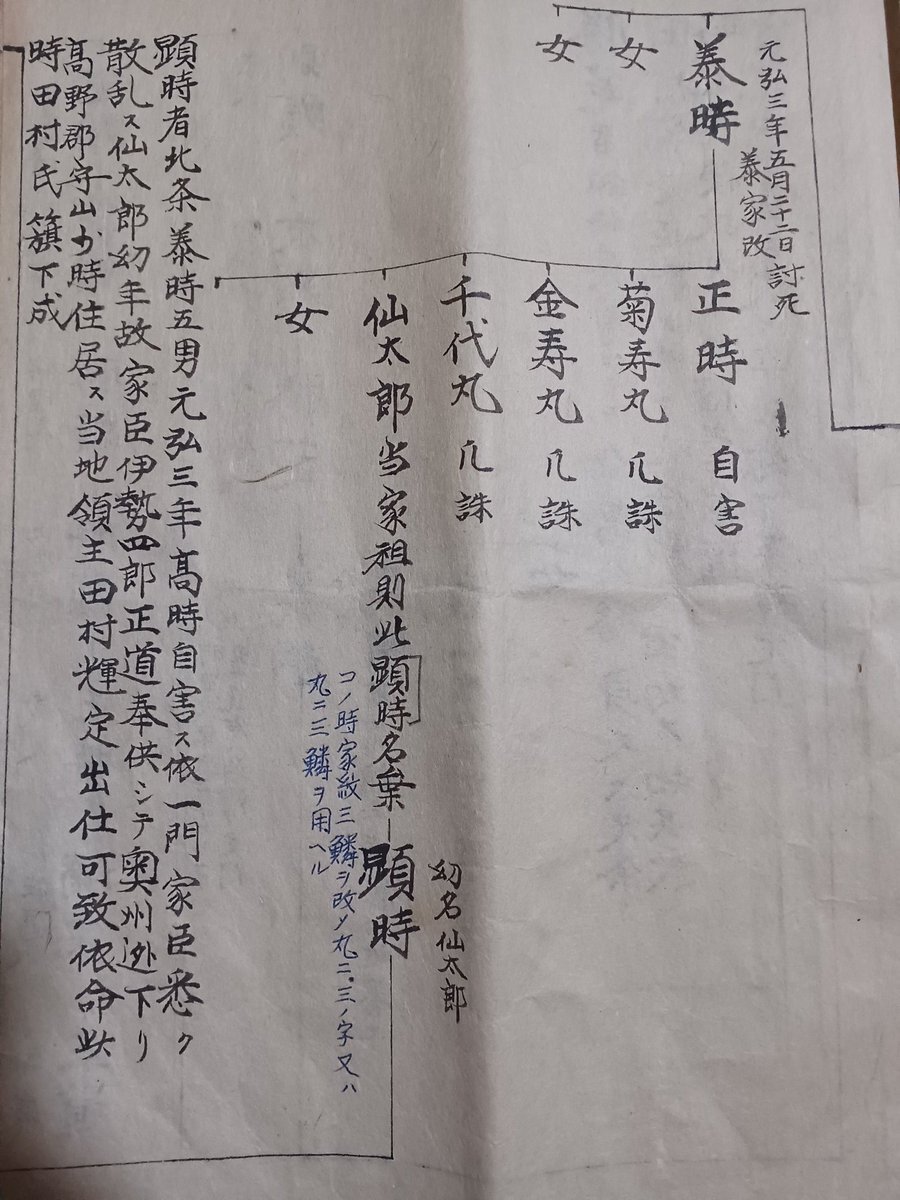 元弘三年五月二十二日討死
泰家改
泰時
女
女
正時 自害
菊寿丸 爪誅
金寿丸 爪誅
千代丸 爪誅
仙太郎当家祖則此顕時名棄
顕時
幼名仙太郎
コノ時家紋三鱗ヲ改メ丸ニ三ノ字又ハ
丸ニ三鱗ヲ用ヘル
女
顕時者北条泰時五男元弘三年高時自害ス依一門家臣悉ク
散乱ス仙太郎幼年故家臣伊勢四郎正道奉供シテ奥州逊下リ
高野郡守山於時住居ス当地領主田村輝定出仕可致依命此
時田村氏籏下成